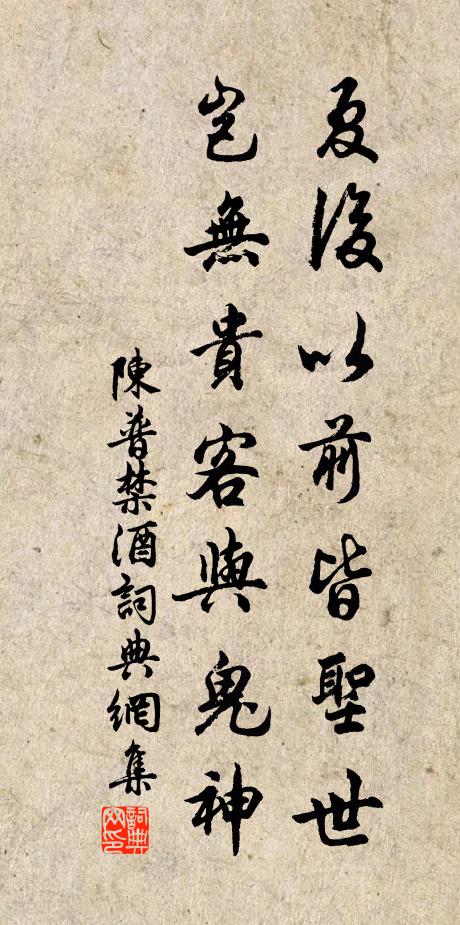 夏後以前皆聖世
豈無貴客與鬼神
陳普禁酒詞典網集
詞典
网印